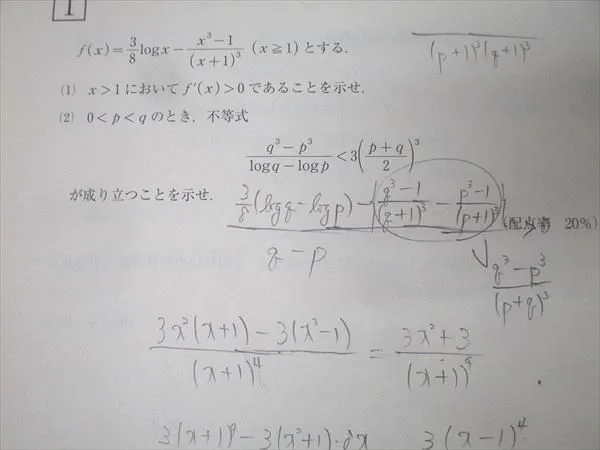 1
f(x)=3/8 log x − (x³−1)/(x+1)³ (x≧1)とする.
(p+1)³(q+1)³
(1) x>1においてf′(x)>0であることを示せ.
(2) 0<p<qのとき，不等式
(q³−p³)/(log q−log p)<3((p+q)/2)³
が成り立つことを示せ.
(配点率 20%)
3/8(log q−log p)−((q³−1)/(q+1)³ − (p³−1)/(p+1)³)
q−p
(q³−p³)/(p+q)³
(3x²(x+1)−3(x³−1))/(x+1)⁴ = (3x²+3)/(x+1)⁴
3(x+1)⁴−3(x²+1)·8x 3(x−1)⁴